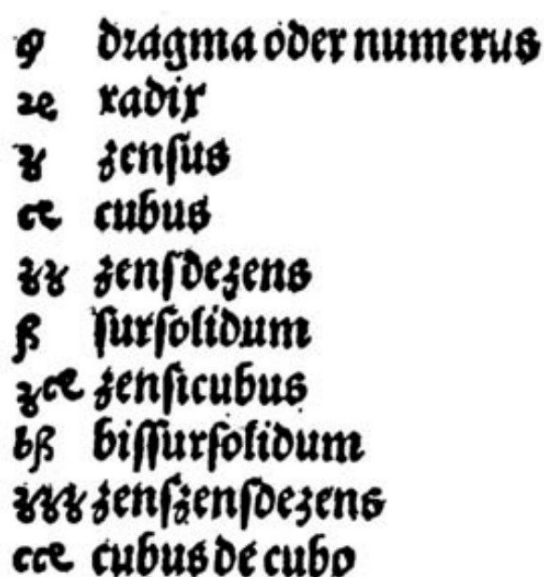 ꝯ dragma oder numerus
ꝛe radix
ʒ zensus
ce cubus
ʒʒ zensdezens
ß sursolidum
ʒce zensicubus
bß bissursolidum
ʒʒʒ zenszensdezens
cce cubus de cubo